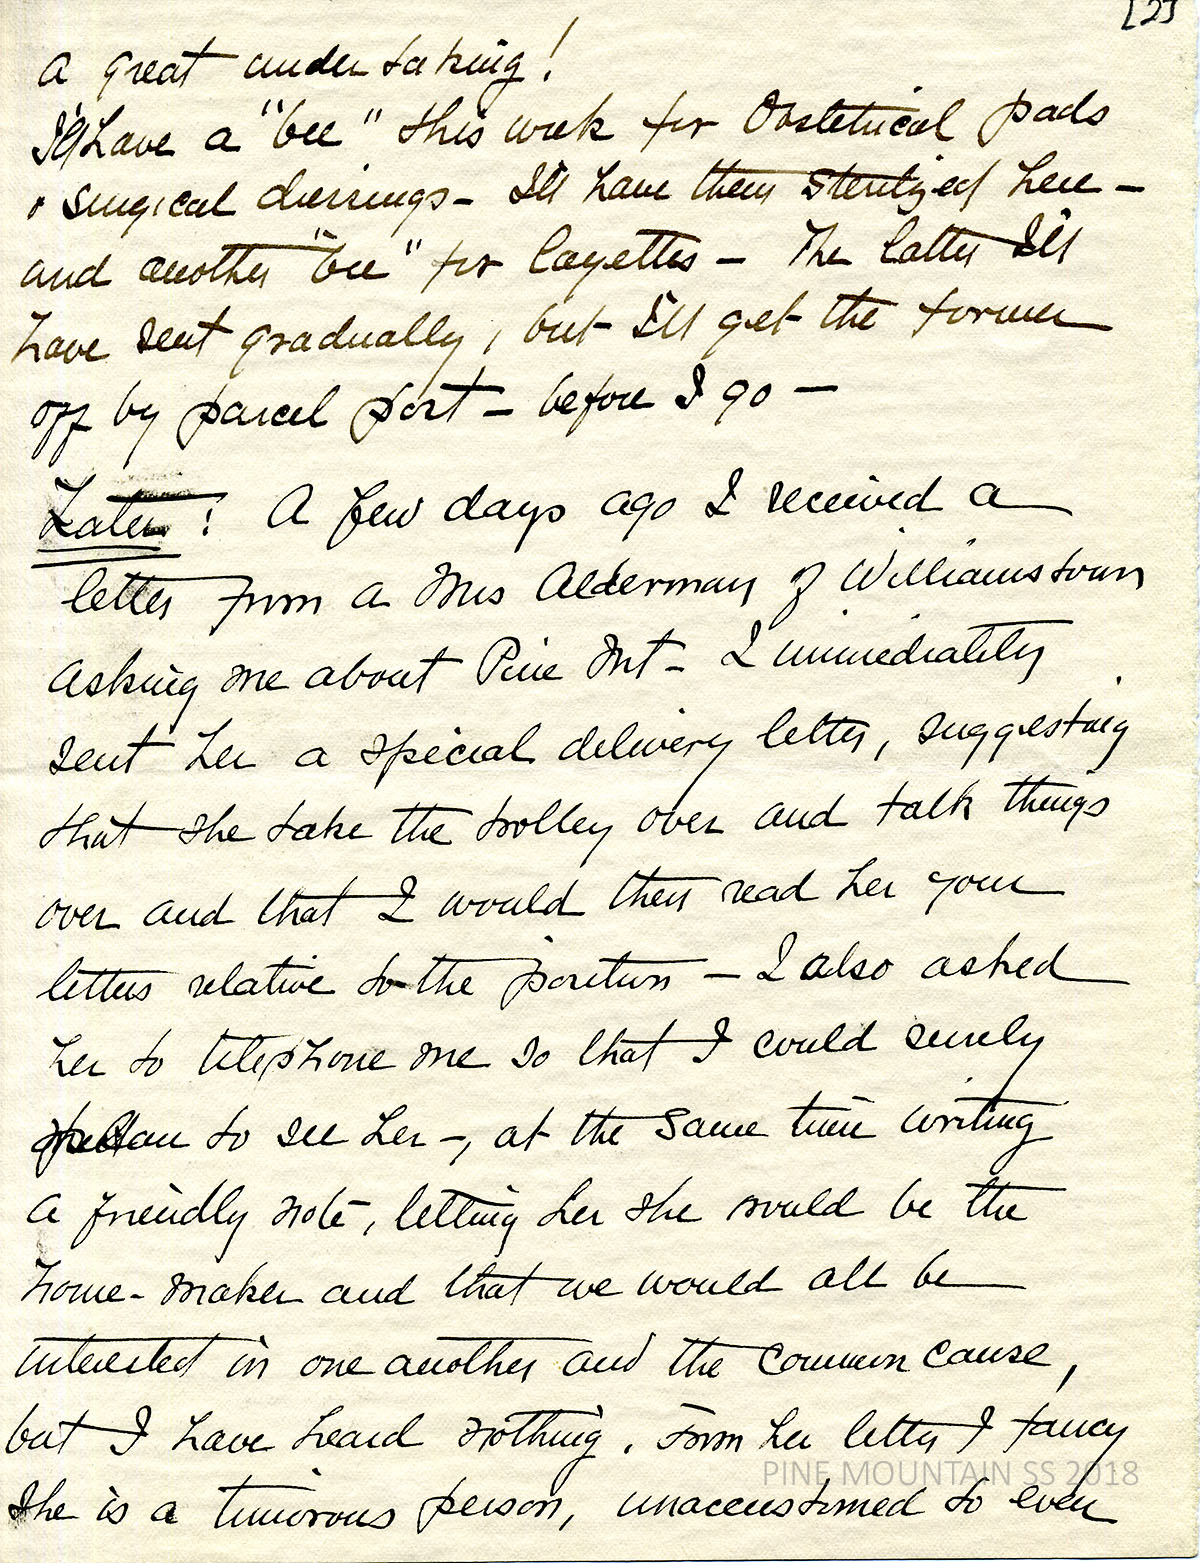 [2]
a great undertaking!
I'll have a "bee" this week for Obstetrical pads
& surgical dressings - I'll have them sterilized here -
and another "bee" for layettes - The latter I'll
have sent gradually, but I'll get the former
off by parcel post - before I go -
Later: A few days ago I received a
letter from a Mrs Alderman of Williamstown
asking me about Pine Mt - I immediately
sent her a special delivery letter, suggesting
that she take the trolley over and talk things
over and that I would then read her your
letters relative to the position - I also asked
her to telephone me so that I could surely
plan to see her -, at the same time writing
a friendly note, letting her she would be the
home-maker and that we would all be
interested in one another and the common cause,
but I have heard nothing. From her letter I fancy
she is a timorous person, unaccustomed to even
PINE MOUNTAIN SS 2018